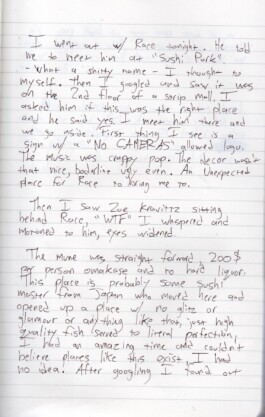 I went out w/ Race tonight. He told
me to meet him at "Sushi Park".
- What a shitty name - I thought to
myself. Then I googled and saw it was
on the 2nd floor of a strip mall. I
asked him if this was the right place
and he said yes. I meet him there and
we go inside. First thing I see is a
sign w/ a "NO CAMERAS" allowed logo.
The music was crappy pop. The decor wasn't
that nice, borderline ugly even. An Unexpected
place for Race to bring me to.
Then I saw Zoe Kravitz sitting
behind Race, "WTF" I whispered and
motioned to him, eyes widened.
The menu was straight forward, 200$
per person omakase and no hard liquor.
This place is probably some sushi
master from Japan who moved here and
opened up a place w/ no glitz or
glamour or anything like that, just high
quality fish served to literal perfection.
I had an amazing time and couldn't
believe places like this exist, I had
no idea. After googling I found out